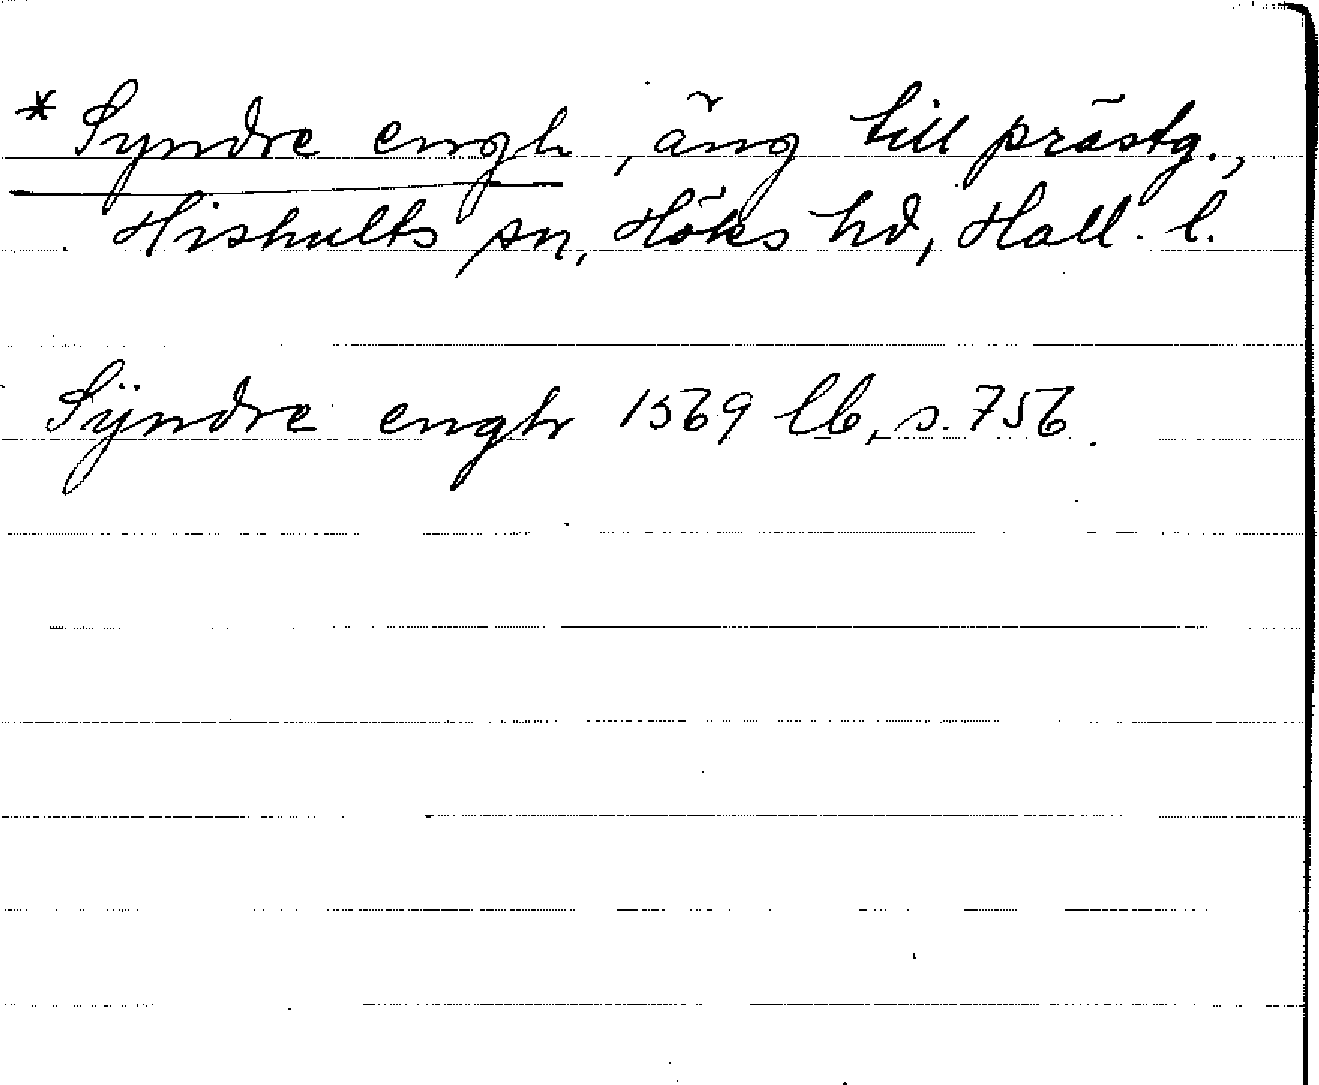 * Syndre engh, äng till prästg.,
Hishults sn, Höks hd, Hall. l.
Sÿndre engh 1569 lb, s. 756.